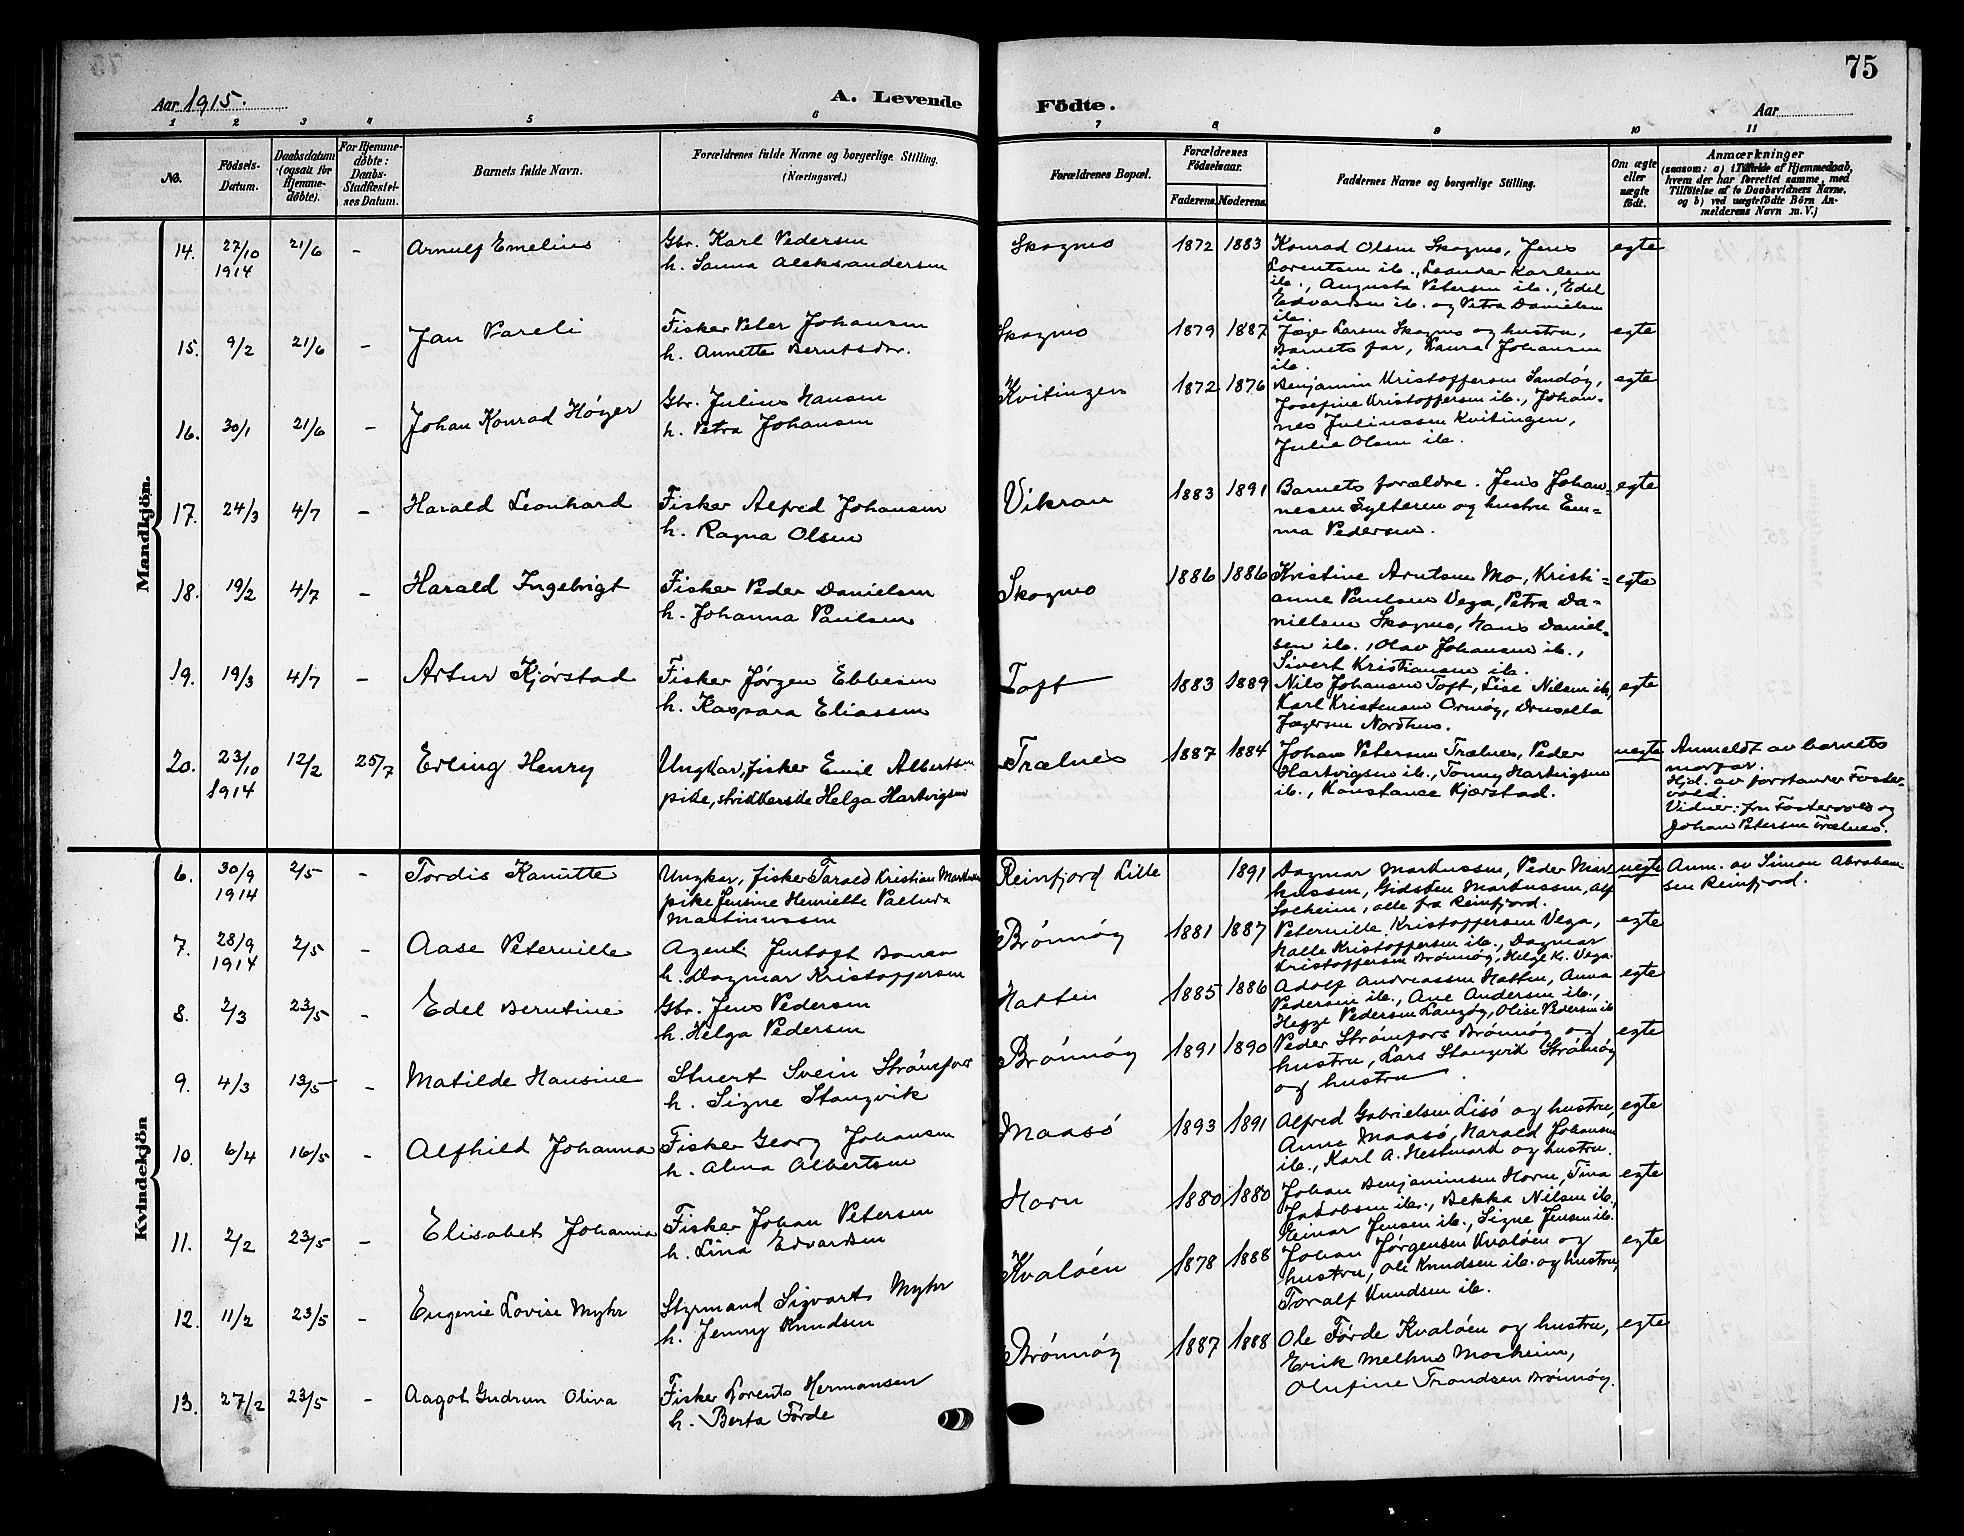 75
Aar 1915.
A. Levende Födte.
Aar
1 2 3 4 5 6 7 8 9 10 11
No.
Födsels-Datum.
Daabsdatum (ogsaa for Hjemmedøbte).
For Hjemmedøbte: Daabs-Stadfæstelses Datum.
Barnets fulde Navn.
Forældrenes fulde Navne og borgerlige Stilling. (Næringsvei.)
Forældrenes Bopæl.
Forældrenes Fødselsaar.
Faderens. Moderens.
Faddernes Navne og borgerlige Stilling.
Om ægte eller uægte født.
Anmærkninger
(saasom: a) i Tilfælde af Hjemmedaab, hvem der har forrettet samme, med Tilföielse af to Daabsvidners Navne, og b) ved uægtefödte Börn Anmelderens Navn m. V.)
Mandkjön.
14. 27/10 1914 21/6 - Arnulf Emelius
Gbr. Karl Pedersen
h. Sanna Aleksandersen
Skogmo 1872 1883
Konrad Olsen Skogmo, Jens
Lorentsen ib., Leander Karlsen
ib., Augusta Petersen ib., Edel
Edvardsen ib. og Petra Danielsen
ib.
egte
15. 9/2 21/6 - Jan Pareli
Fisker Peter Johansen
h. Annette Berntsdtr.
Skogmo 1879 1887
Jæger Larsen Skogmo og hustru,
Barnets far, Laura Johansen
ib.
egte
16. 30/1 21/6 - Johan Konrad Høyer
Gbr. Julius Hansen
h. Petra Johansen
Kvitingen 1872 1876
Benjamin Kristoffersen Sandøy,
Josefine Kristoffersen ib., Johan-
nes Juliussen Kvitingen,
Julie Olsen ib.
egte
17. 24/3 4/7 - Harald Leonhard
Fisker Alfred Johansen
h. Ragna Olsen
Vikran 1883 1891
Barnets forældre. Jens Johan-
nesen Sylteren og hustru Em-
ma Pedersen.
egte
18. 19/2 4/7 - Harald Ingebrigt
Fisker Peder Danielsen
h. Johanna Paulsen
Skogmo 1886 1886
Kristine Arntsen Mo, Kristi-
anne Paulsen Vega, Petra Da-
nielsen Skogmo, Hans Daniel-
sen ib., Olav Johansen ib.,
Sivert Kristiansen ib.
egte
19. 19/3 4/7 - Artur Kjørstad
Fisker Jørgen Ebbesen
h. Kaspara Eliassen
Toft 1883 1889
Nils Johansen Toft, Lise Nilsen ib,
Karl Kristensen Ormøy, Drusella
Jægersen Nordhus.
egte
20. 23/10 1914 12/2 25/7 Erling Henry
Ungkar, fisker Emil Albertsen
pike, strikkerske Helga Hartvigsen
Trælnes 1887 1884
Johan Petersen Trælnes, Peder
Hartvigsen ib., Tonny Hartvigsen
ib., Konstance Kjørstad.
uegte
Anmeldt av barnets
morfar.
Hjd. av forstander Foster-
vold.
Vidner: fru Fostervold og
Johan Petersen Trælnes.
Kvindekjön
6. 30/9 1914 2/5 - Tordis Kanutte
Ungkar, fisker Tarald Kristian Markussen
pike Jensine Henriette Paulna
Martinussen
Reinfjord Lille 1891
Dagmar Markussen, Peder Mar-
kussen, Gidsten Markussen, Alf
Solheim, alle fra Reinfjord.
uegte
Anm. av Simon Abraham-
sen Reinfjord.
7. 28/9 1914 2/5 - Aase Peternille
Agent Jentoft
h. Dagmar Kristoffersen
Brønnøy 1881 1887
Peternille Kristoffersen Vega,
Halle Kristoffersen ib., Dagmar
Kristoffersen Brønnøy, Helge K. Vega.
egte
8. 2/3 23/5 - Edel Berntine
Gbr. Jens Pedersen
h. Helga Pedersen
Hatten 1885 1886
Adolf Andreassen Hatten, Anna
Pedersen ib., Ane Andersen ib.,
Pedersen Langøy, Olise Pedersen ib
egte
9. 4/3 13/5 - Matilde Hansine
Stuert Svein Strømfors
h. Signe Stangvik
Brønnøy 1891 1890
Peder Strømfors Brønnøy og
hustru, Lars Stangvik Strømøy
og hustru.
egte
10. 6/4 16/5 - Alfhild Johanna
Fisker Georg Johansen
h. Alma Albertsen
Maasø 1893 1891
Alfred Gabrielsen Lisø og hustru,
Anne Maasø, Harald Johansen
ib., Karl A. Hestmark og hustru.
egte
11. 2/2 23/5 - Elisabet Johanna
Fisker Johan Petersen
h. Lina Edvardsen
Horn 1880 1880
Johan Benjaminsen Horn, Tina
Jakobsen ib., Bekka Nilsen ib,
Reinar Jensen ib., Signe Jensen ib.
egte
12. 11/2 23/5 - Eugenie Lovise Myhr
Styrmand Sigvart Myhr
h. Jenny Knudsen
Kvaløen 1878 1888
Johan Jørgensen Kvaløen og
hustru, Ole Knudsen ib. og hustru,
Toralf Knudsen ib.
egte
13. 27/2 23/5 - Aagot Gudrun Oliva
Fisker Lorents Hermansen
h. Berta Førde
Brønnøy 1887 1888
Ole Førde Kvaløen og hustru,
Erik Melhus Mosheim,
Olufine Trondsen Brønnøy.
egte